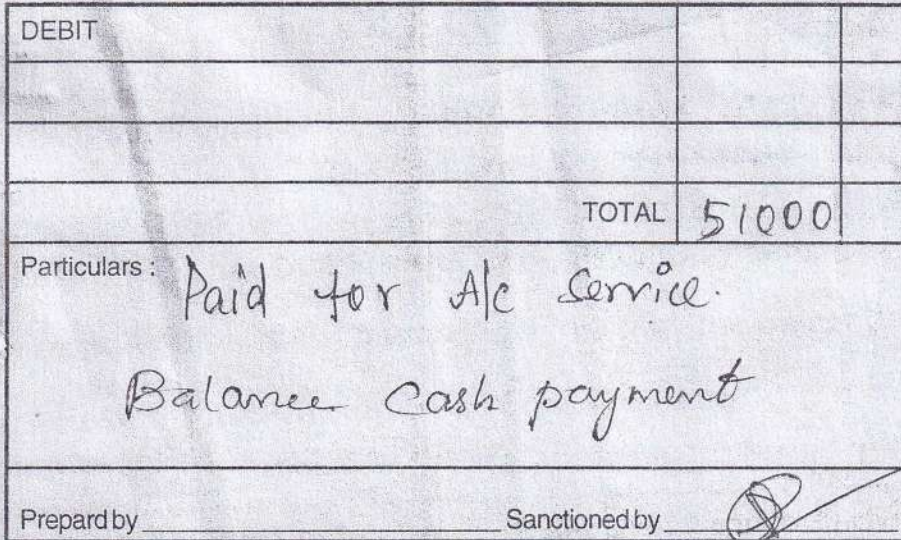 DEBIT
TOTAL 51000
Particulars : Paid for A/c Service.
Balance Cash payment
Prepard by Sanctioned by